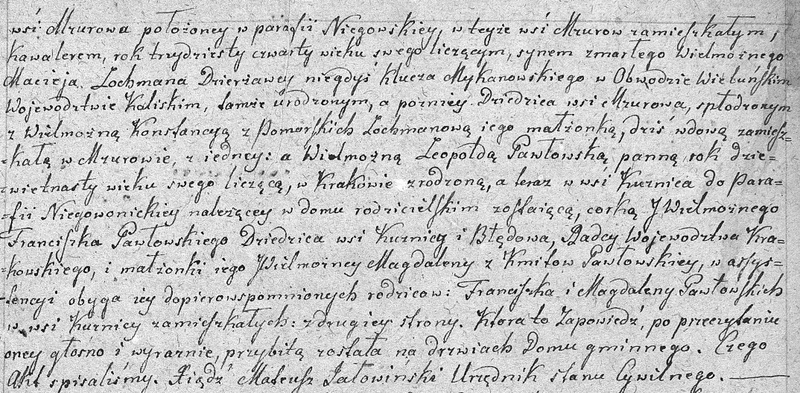 wsi Mzurowa położoney w parafii Niegowskiey, w teyże wsi Mzurow zamieszkałym,
kawalerem, rok trzydziesty czwarty wieku swego liczącym, synem zmarłego Wielmożnego
Macieja Lochmana Dzierżawcy niegdyś klucza Mykanowskiego w Obwodzie Wieluńskim
Wojewodztwie Kaliskim, tamże urodzonym, a pozniey Dziedzica wsi Mzurowa, spłodzonym
z Wielmożną Konstancyą z Pomorskich Lochmanową iego małżonką, dziś wdową zamiesz-
-kałą w Mzurowie, z iedney: a Wielmożną Leopoldą Pawłowską panną, rok dzie-
-więtnasty wieku swego liczącą, w Krakowie zrodzoną, a teraz w wsi Kuznica do Para-
-fii Niegowonickiey należącey w domu rodzicielskim zostaiącą, corką JWielmożnego
Franciszka Pawłowskiego Dziedzica wsi Kuznicy i Błędowa, Radcy Wojewodztwa Kra-
-kowskiego, i małżonki iego JWielmożney Magdaleny z Kmitow Pawłowskiey, w assys-
-tencyi obyga iey dopierowspomnionych rodzicow: Franciszka i Magdaleny Pawłowskich
w wsi Kuznicy zamieszkałych: z drugiey strony. Ktora to Zapowiedź, po przeczytaniu
oney głosno i wyraznie, przybitą została na drzwiach Domu gminnego. Czego
Akt spisaliśmy. Xiądz Mateusz Jałowiński Urzędnik stanu Cywilnego.